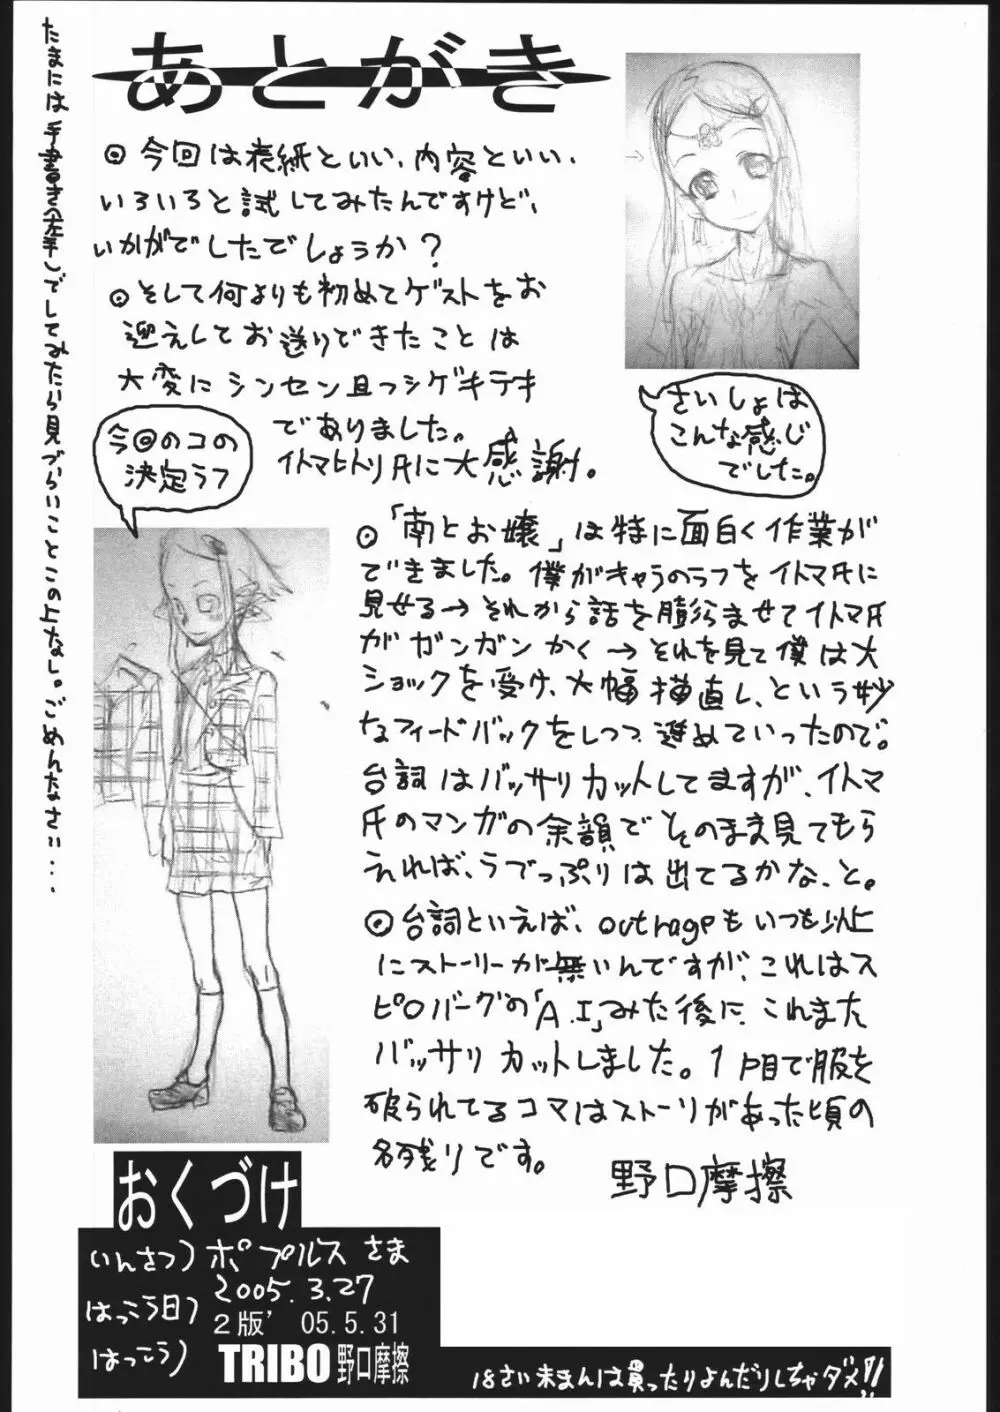 たまには手書き(左手)でしてみたら見づらいことこの上なし。ごめんなさい...
あとがき
◎今回は表紙といい、内容といい、
いろいろと試してみたんですけど、
いかがでしたでしょうか?
◎そして何よりも初めてゲストをお
迎えしてお送りできたことは
大変にシンセン且つシゲキテキ
でありました。
イトマヒトリ氏に大感謝。
さいしょは
こんな感じ
でした。
今回のコの
決定ラフ
◎「南とお嬢」は特に面白く作業が
できました。僕がキャラのラフをイトマ氏に
見せる→それから話を膨らませてイトマ氏
がガンガンかく→それを見て僕は大
ショックを受け、大幅描直し、という妙
なフィードバックをしつつ進めていったので。
台詞はバッサリカットしてますが、イトマ
氏のマンガの余韻でそのまま見てもら
えれば、うでっぷりは出てるかな、と。
◎台詞といえば、outrageもいつも以上
にストーリーが無いんですが、これはス
ピロバーグの「A.I」みた後に、これまた
バッサリカットしました。1P目で服を
破られてるコマはストーリがあった頃の
名残りです。
野口摩擦
おくづけ
いんさつ)ポプルスさま
はっこう日)2005.3.27
2版' 05.5.31
はっこう)TRIBO野口摩擦
18さい未まんは買ったりよんだりしちゃダメ!!